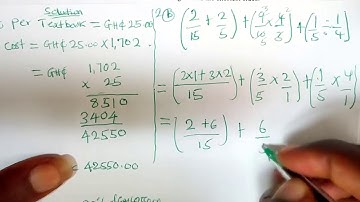 Solution
Per Textbook = GH¢25.00
Cost = GH¢25.00 X 1,702
= GH¢ 1,702
x 25
8510
3404
42550
= 42550.00
2 b (2/15 + 2/5) + (9/10 x 4/3) + (1/5 ÷ 1/4)
= (2x1+3x2/15) + (3/5 x 2/1) + (1/5 x 4/1)
= (2+6/15) + 6/